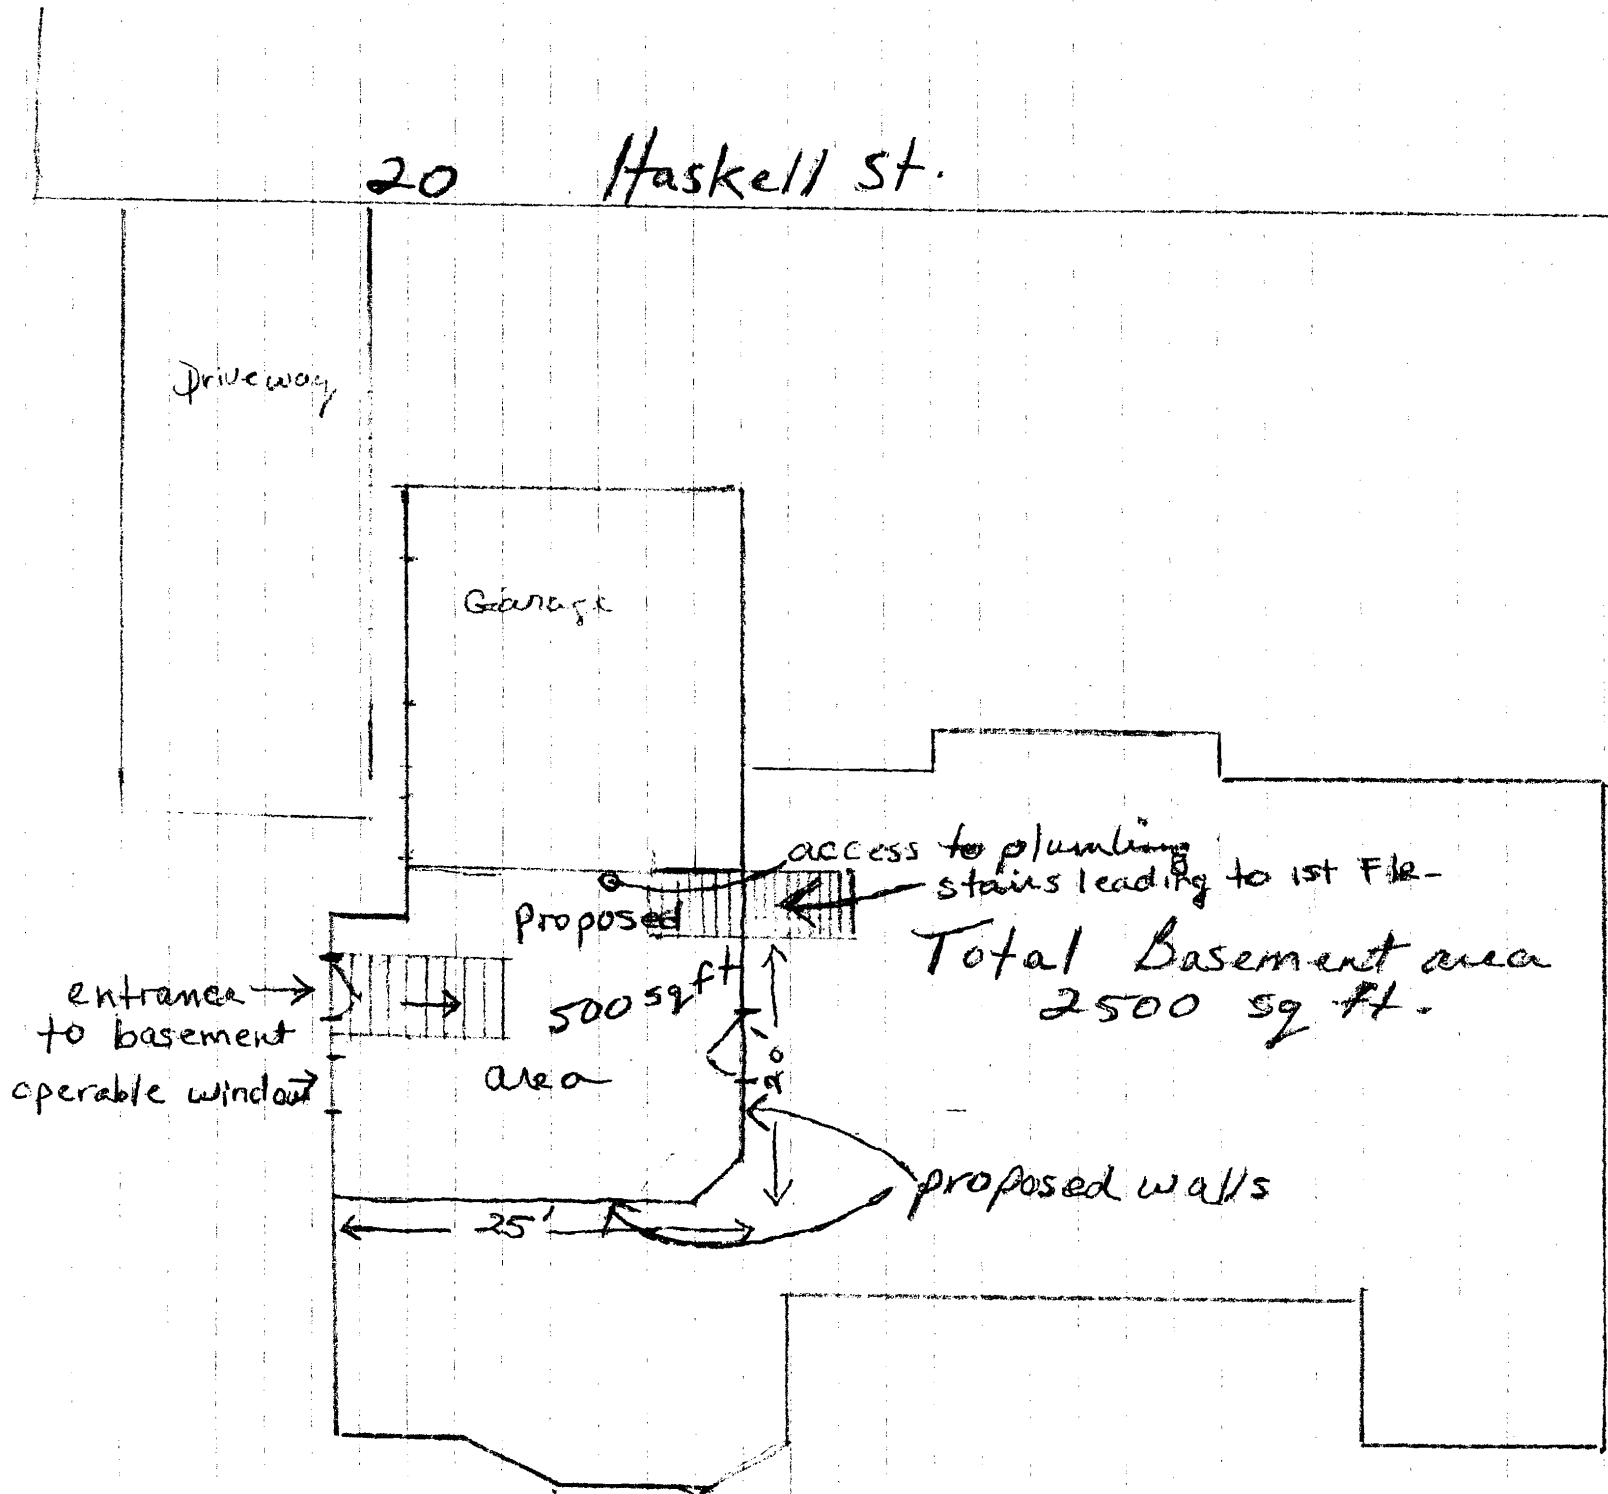 20 Haskell St.
Driveway
Garage
access to plumbing
stairs leading to 1st Flr
proposed
500 sq ft
area
Total Basement area
2500 sq ft.
entrance
to basement
operable window
20
proposed walls
25'